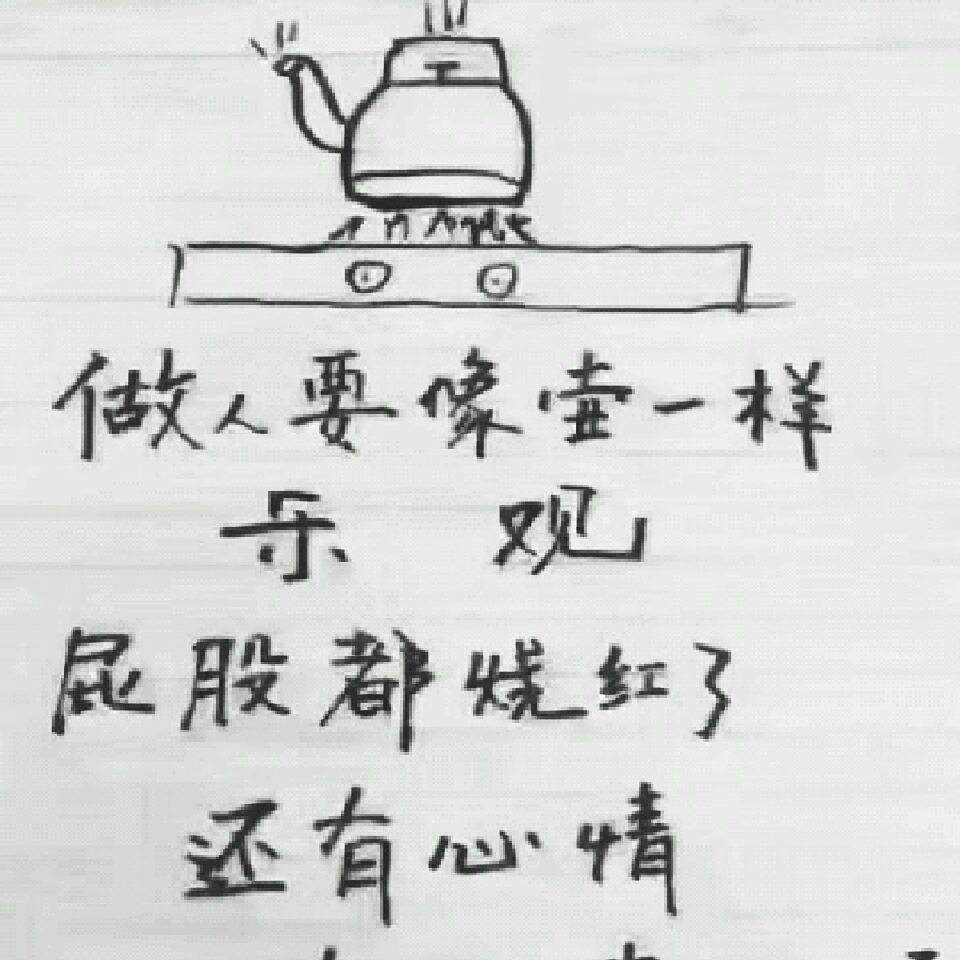 做人要像壶一样
乐 观
屁股都烧红了
还有心情